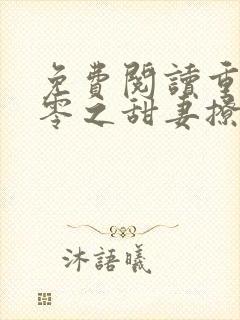 免費閱讀重
零之甜妻撩
沐語曦